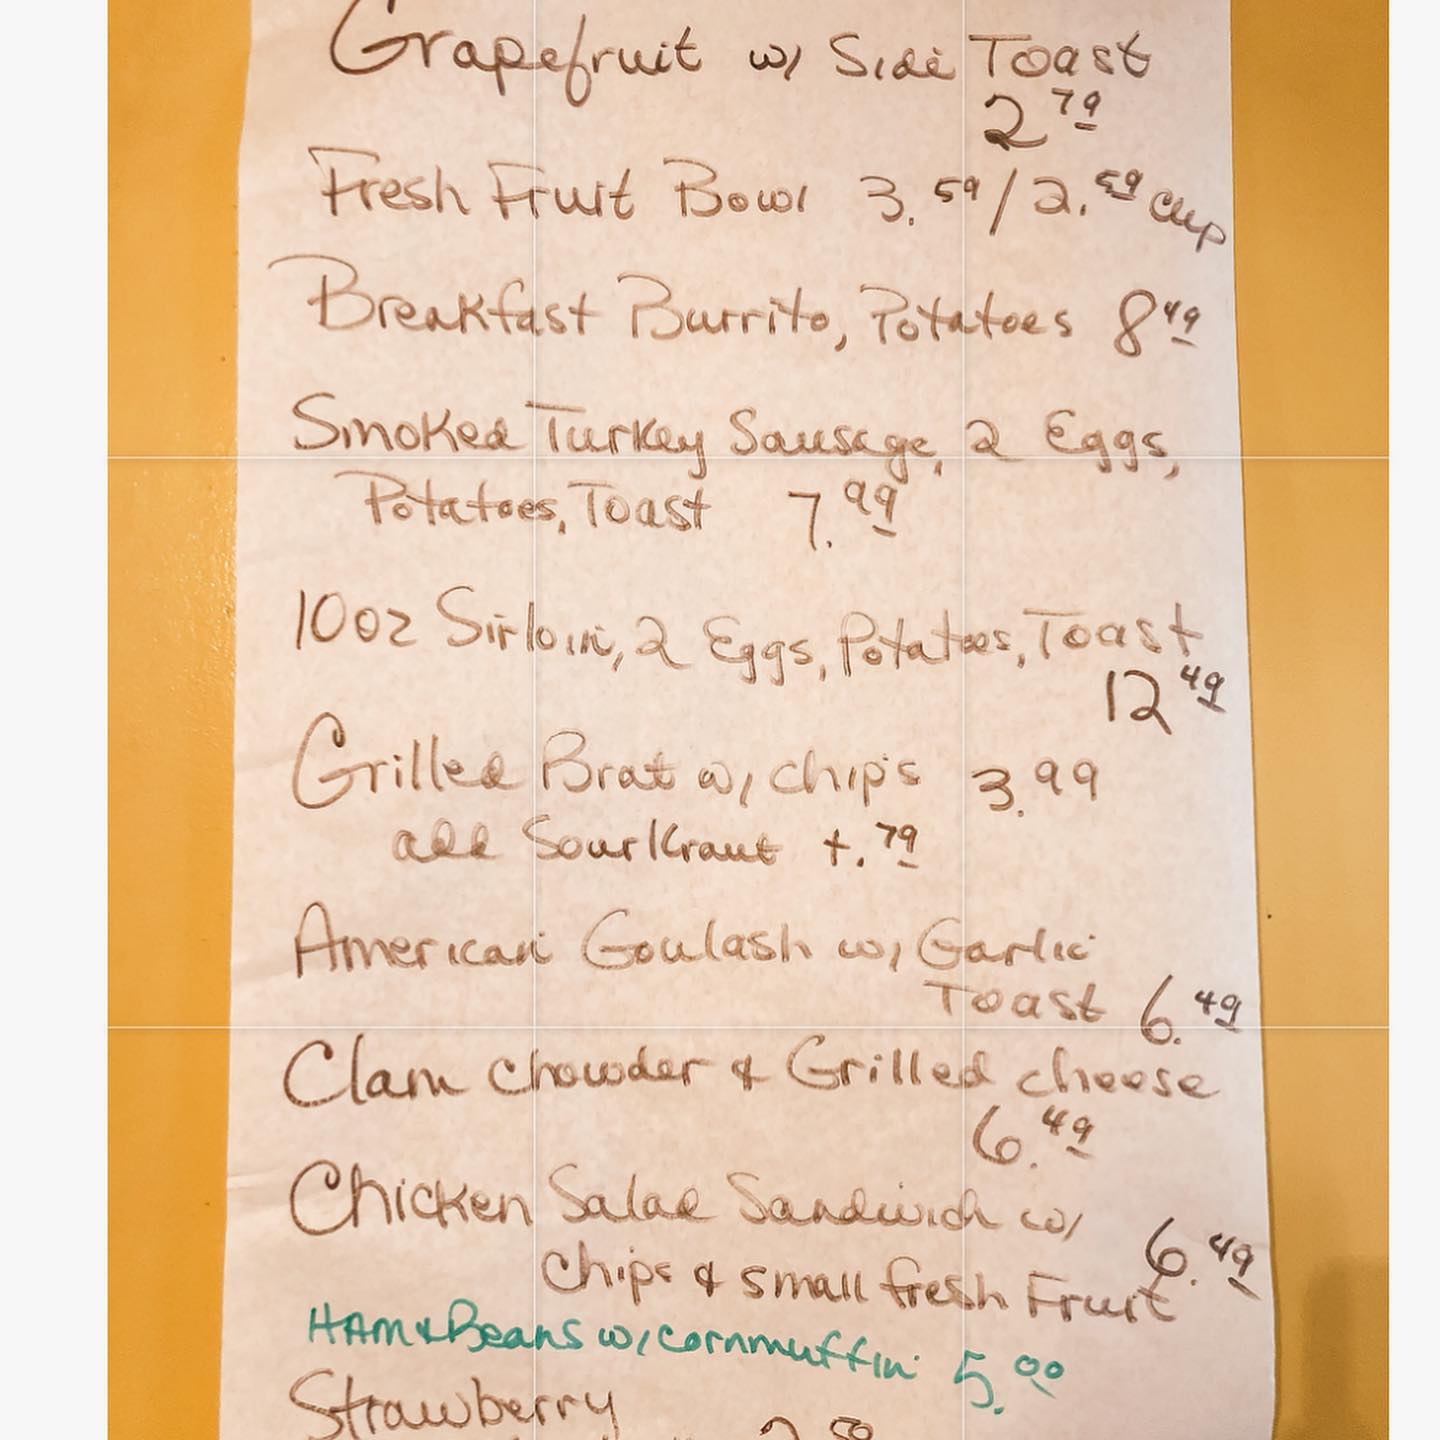 Grapefruit w/ Side Toast
2 79
Fresh Fruit Bowl 3.59/2.59 cup
Breakfast Burrito, Potatoes 8 49
Smoked Turkey Sausage, 2 Eggs,
Potatoes, Toast 7.99
10oz Sirloin, 2 Eggs, Potatoes, Toast
12 49
Grilled Brat w/ chips 3.99
add SourKraut +.79
American Goulash w/ Garlic
Toast 6.49
Clam chowder & Grilled cheese
6.49
Chicken Salad Sandwich w/
chips & small fresh Fruit 6.49
HAM & Beans w/ cornmuffin 5.00
Strawberry